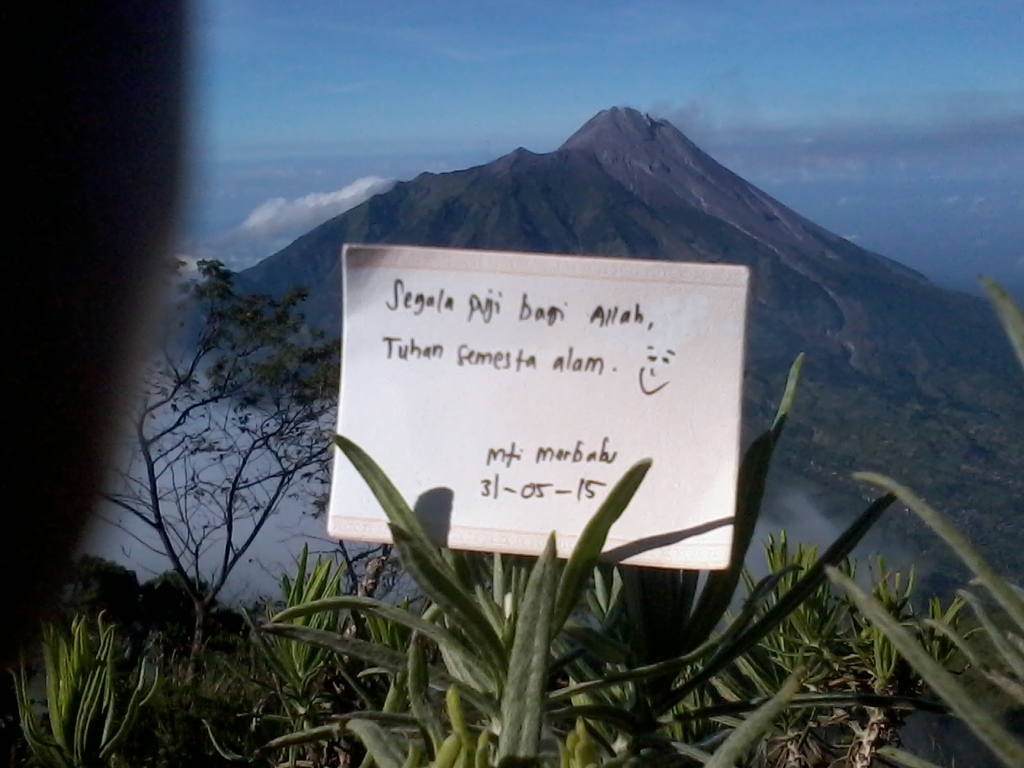 Segala puji bagi Allah,
Tuhan semesta alam.
mt. merbabu
31-05-15